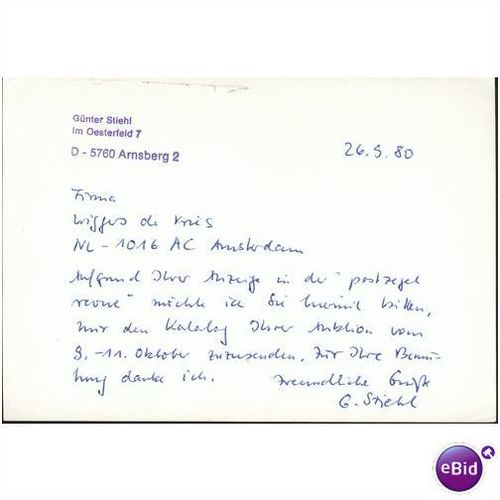 Günter Stiehl
Im Oesterfeld 7
D - 5760 Arnsberg 2
26.9.80
Firma
Wiggers de Vries
NL - 1016 AC Amsterdam
Aufgrund Ihrer Anzeige in der "postzegel
revue" möchte ich Sie hiermit bitten,
mir den Katalog Ihrer Auktion vom
9. - 11. Oktober zuzusenden. Für Ihre Bemü-
hung danke ich. Freundliche Grüße
G. Stiehl
eBid